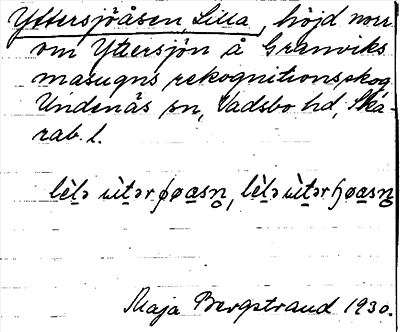 Yttersjöåsen Lilla, höjd norr
om Yttersjön å Granviks
masugns rekognitionsskog
Undenäs sn, Vadsbo hd, Ska-
rab. l.
Maja Bergstrand 1930.